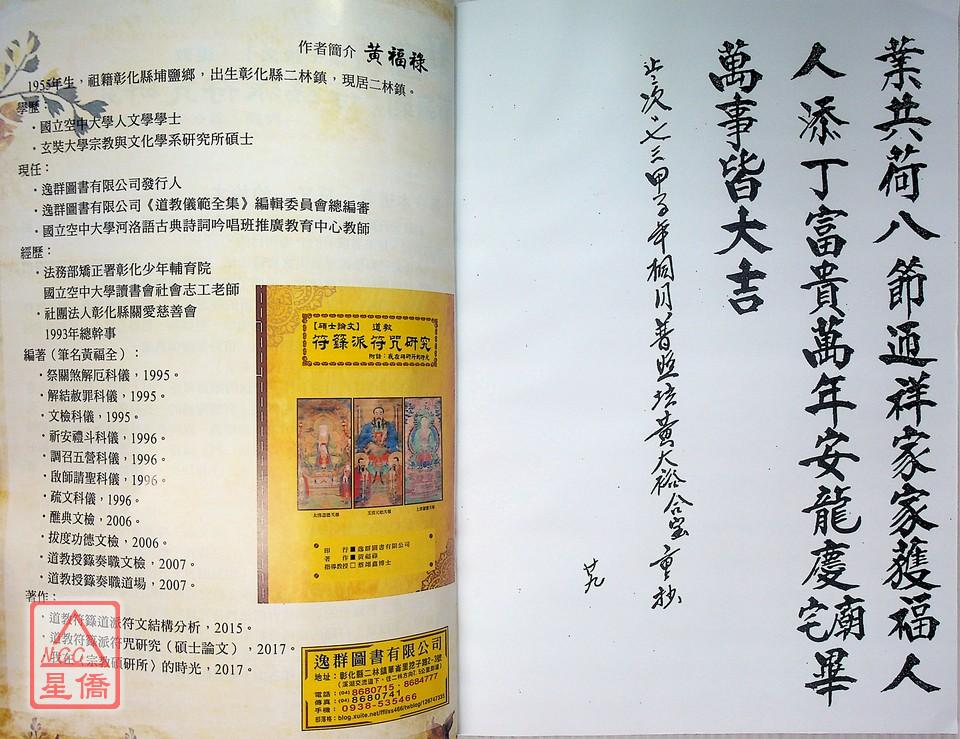 作者簡介 黃福祿
1955年生，祖籍彰化縣埔鹽鄉，出生彰化縣二林鎮，現居二林鎮。
學歷：
・國立空中大學人文學學士
・玄奘大學宗教與文化學系研究所碩士
現任：
・逸群圖書有限公司發行人
・逸群圖書有限公司《道教儀範全集》編輯委員會總編審
・國立空中大學河洛語古典詩詞吟唱班推廣教育中心教師
經歷：
・法務部矯正署彰化少年輔育院
國立空中大學讀書會社會志工老師
・社團法人彰化縣關愛慈善會
1993年總幹事
編著（筆名黃福全）：
・祭關煞解厄科儀，1995。
・解結赦罪科儀，1995。
・文檢科儀，1995。
・祈安禮斗科儀，1996。
・調召五營科儀，1996。
・啟師請聖科儀，1996。
・疏文科儀，1996。
・醮典文檢，2006。
・拔度功德文檢，2006。
・道教授籙奏職文檢，2007。
・道教授籙奏職道場，2007。
著作：
・道教符籙道派符文結構分析，2015。
・道教符籙派符咒研究（碩士論文），2017。
・我在〈宗教碩研所〉的時光，2017。
【碩士論文】 道教
符籙派符咒研究
附註：我在碩研所的時光
太清道德天尊
玉清元始天尊
上清靈寶天尊
印 行■逸群圖書有限公司
著 作■黃福祿
指導教授□蔡翊鑫博士
逸群圖書有限公司
地址：彰化縣二林鎮華崙里挖子路2-3號
（溪湖交流道下，往二林方向7.5公里附近）
電話：(04)8680715・8684777
傳真：(04)8680741
手機：0938-535466
部落格：blog.xuite.net/ffllss466/twblog/126747335
NCC
星僑
業共荷八節通祥家家獲福人
人添丁富貴萬年安龍慶宅廟畢
萬事皆大吉
歲次七三甲子年桐月普照培黃大裕合宝重抄
廿九